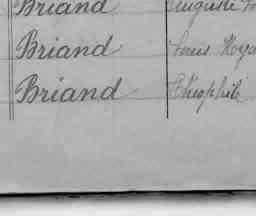 Briand Auguste
Briand Louis
Briand Théophile